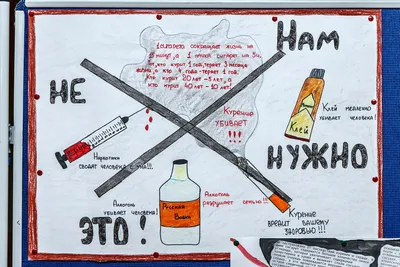 НАМ
НЕ
1 сигарета сокращает жизнь на
минут, а 1 пачка сигарет на 5ч.
кто курит 1 год, теряет 3 месяца
жизни, а кто 4 года - теряет 1 год.
кто курит 20 лет - 5 лет, а
кто курит 40 лет - 10 лет!
Курение
УБИВАЕТ
!!!
Клей
Клей медленно
убивает человека!
Наркотики
сводят человека с ума!!!
НУЖНО
ЭТО!
Алкоголь
убивает человека!
Русская
Водка
Алкоголь
разрушает семью!!!
Курение
вредит вашему
здоровью!!!